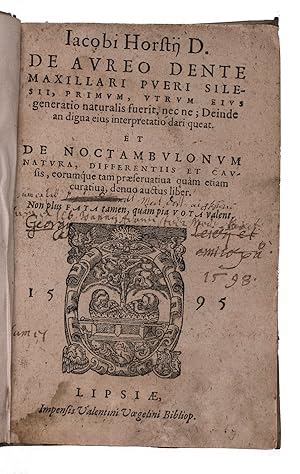 Iacobi Horstij D.
DE AVREO DENTE
MAXILLARI PVERI SILE-
SII, PRIMVM, VTRVM EIVS
generatio naturalis fuerit, nec ne; Deinde
an digna eius interpretatio dari queat.
ET
DE NOCTAMBVLONVM
NATVRA, DIFFERENTIIS ET CAV-
sis, eorumque tam præseruatiua quàm etiam
curatiua, denuo auctus liber.
Non plus FATA tamen, quàm pia VOTA valent.
Georg
1598.
15 95
LIPSIÆ,
Impensis Valentini Vœgelini Bibliop.